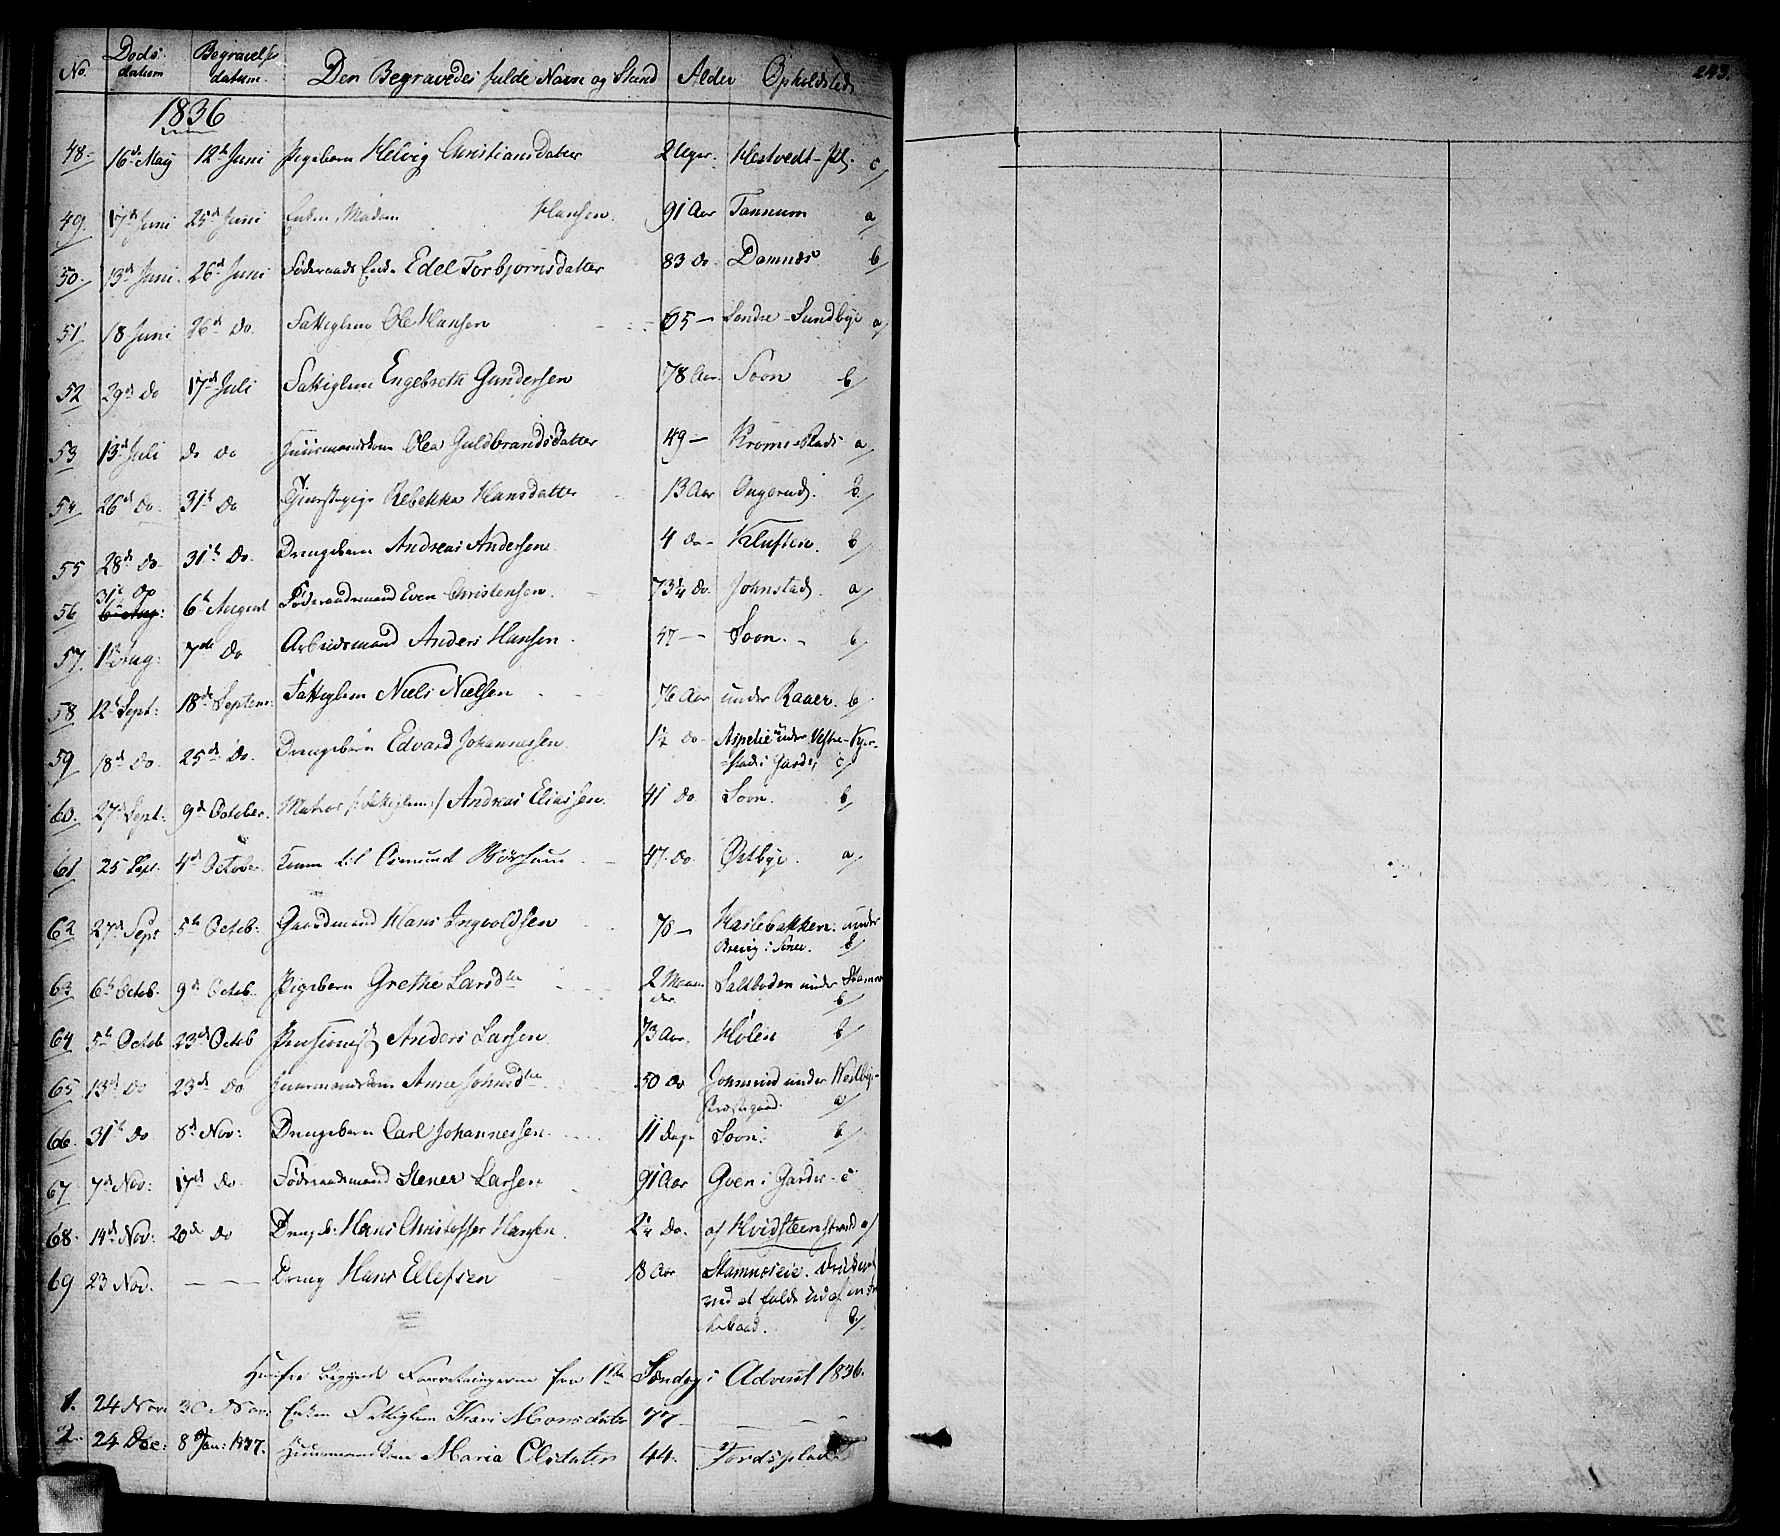 243.
No. Døds datum Begravelses datum. Den Begravedes fulde Navn og Stand Alder Opholdsted
1836
48 16de Maij 12te Juni Pigebarn Helvig Christiansdatter 2 Uger. Hestvedt c/
49. 17de Juni 25de Juni Enken, Madam Hansen. 91 Aar Tannum a/
50. 13de Juni. 26de Juni Føderaads Enke Edel Torbjørnsdatter 83 Do. Damnæs b/
51 18 Juni 26de Do. Fattiglem Ole Hansen 65 — Søndre-Sundbye a/
52 29de Do 17de Juli Fattiglem Engebreth Gundersen 78 Aar. Soon b/
53 13de Juli do do Huusmandskone Olea Guldbrandsdatter 49 — Kromestad a/
54 26de Do. 31te Do Tjenestepige Rebekka Hansdatter 13 Aar Ongerud. b/
55 28de Do. 31te Do. Drengebarn Andreas Andersen 4 Do - Kluften. b/
56 31te Do 6te Aug: 6te August Føderaadsmand Even Christensen. 73¼ Do. Johnstad. a/
57. 1ste Aug: 7de Do Arbeidsmand Anders Hansen. 47 — Soon. b/
58 12te Sept: 18de Septem: Fattiglem Niels Nielsen 76 Aar under Raaer. b/
59 18de Do. 25de Do. Drengebarn Edvard Johannessen. 1½ Do- Aspelie under Vestre-Kjer-
stad i Garder c/
60. 27de Sept: 9de October. Matros /: Fattiglem :/ Andreas Eliassen. 41 Do. Soon. b/
61 25 Sept. 4de October Kone til Asmund 47. Do. Østbye. a/
62 27de Sept 5te Octob: Gaardmand Hans Ingvoldsen 70 — Haslebakken. under
Brevig i Soner. b/
63 6te Octob. 9de Octob. Pigebarn Grethe Larsdtr 2 Maaneder. Saltboden under Stamnes
b/
64 5te Octob 23de Octob Pensionist Anders Larsen 73 Aar. Hølen b/
65 13de Do 23de Do Huusmandskone Anne Johnsdtr 50 Do Johnsrud under Vestbye-
Præstegaard. a/
66. 31te Do. 8de Nov: Drengebarn Carl Johannessen. 11 Dage Soon. b/
67 7de Nov: 17de Do. Føderaadsmand Stener Larsen 91 Aar Gven i Garder - c
68. 14de Nov: 20de Do Dreng Hans Christoffer Hansen. 2¼ Do. af Hvidsteenstrand a/
69 23 Nov. — — — Dreng Hans Ellefsen 18 Aar Stamnæseie. Druknet
ved at falde ud af en
b/
Herfra begynde Forretningerne fra 1ste Søndag i Advent 1836.
1. 24 Nov: 30 Nov: Enken Fattiglem Kari Monsdater 77 — — —
2. 24 Dec: 8de Jan: 1837. Huusmandskone Maria Olsdater 44. Fordsplads